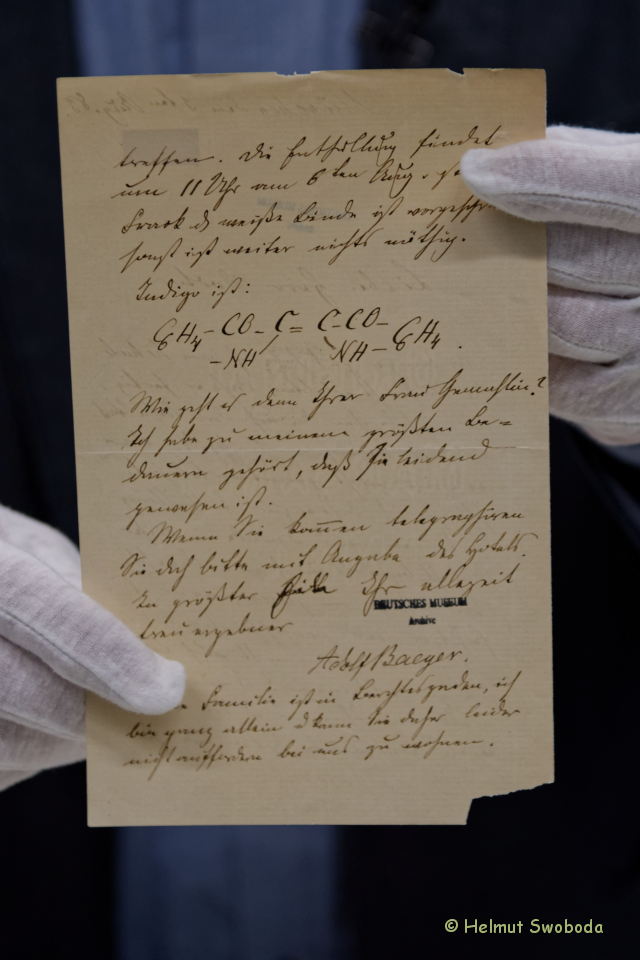 treffen. Die Enthüllung findet
um 11 Uhr am 6ten Aug.
Frack & weiße Binde ist
sonst ist weiter nichts nöthig.
Indigo ist:
C6H4 – CO – C = C – CO – C6H4 .
– NH NH –
Wie geht es denn Ihrer Frau Gemahlin?
Ich habe zu meinem größten Be=
dauern gehört, daß Sie leidend
gewesen ist.
Wenn Sie kommen telegraphiren
Sie doch bitte mit Angabe des Hotels.
In größter Eile Ihr allezeit
DEUTSCHES MUSEUM
Archive
treu ergebner
Adolf Baeyer.
Familie ist in Berchtesgaden, ich
bin ganz allein & kann Sie daher leider
nicht auffordern bei uns zu wohnen.
© Helmut Swoboda